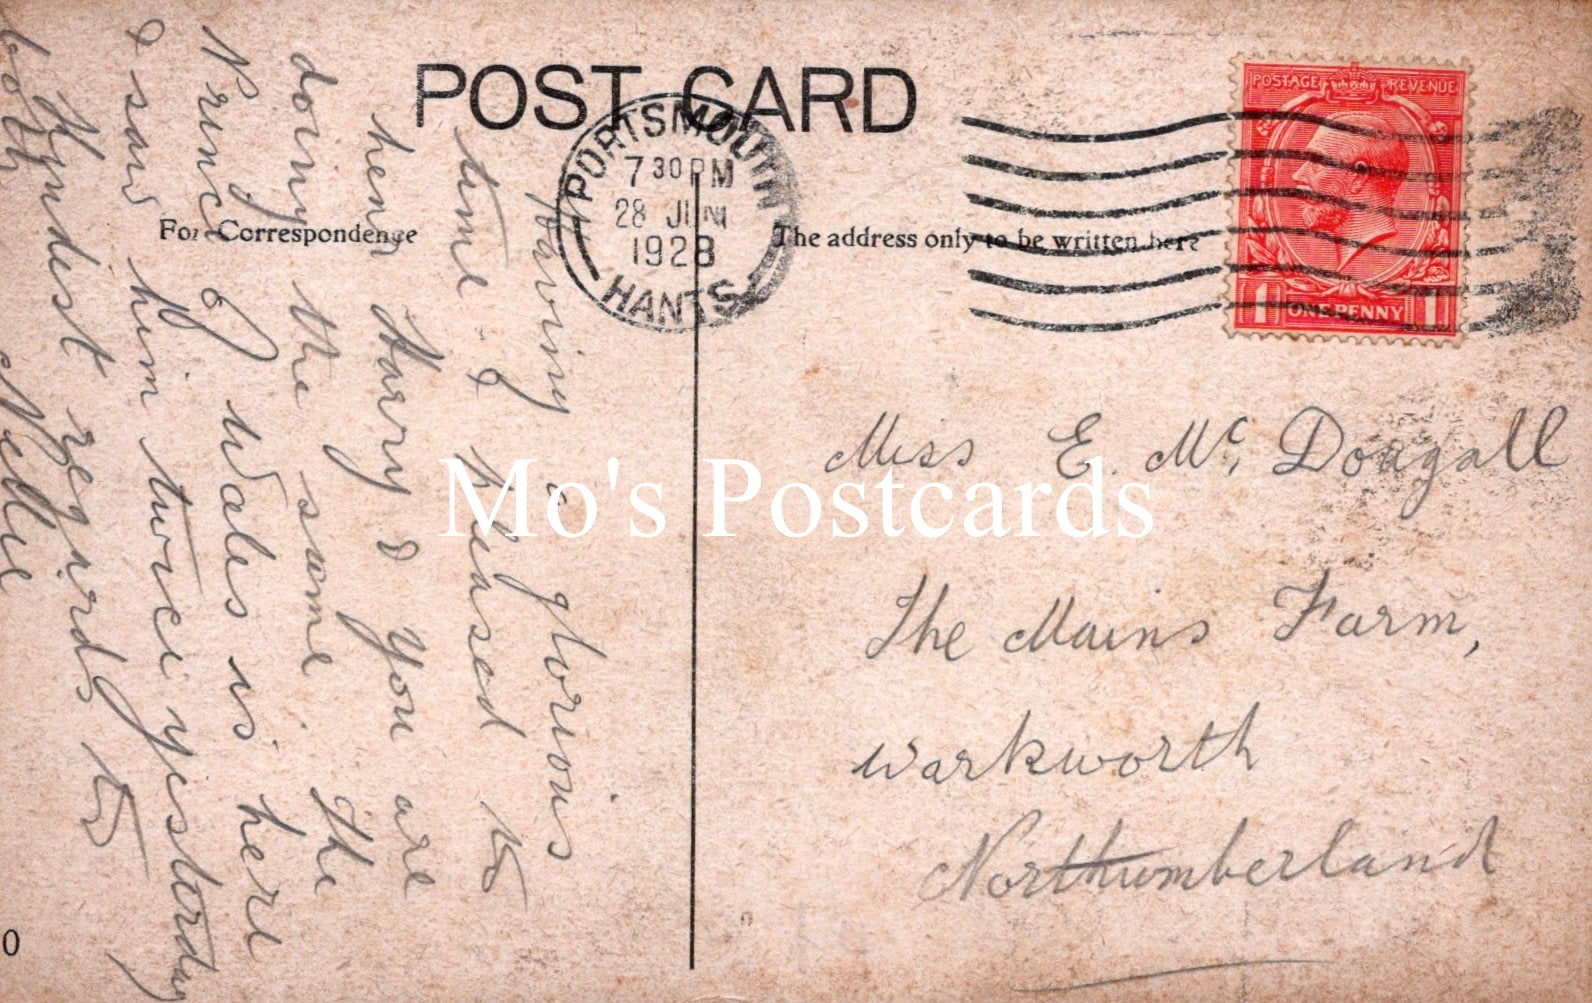 POST CARD
For Correspondence
The address only to be written here
PORTSMOUTH
7 30 PM
28 JUN
1928
HANTS
POSTAGE REVENUE
1 ONE PENNY 1
Having a glorious
time & pleased to
hear Harry & you are
doing the same. The
Prince of Wales is here
& saw him twice yesterday
Kyndest regards to
both Nellie
Miss E. Mc. Dougall
The Mains Farm,
Warkworth
Northumberland
Mo's Postcards
0